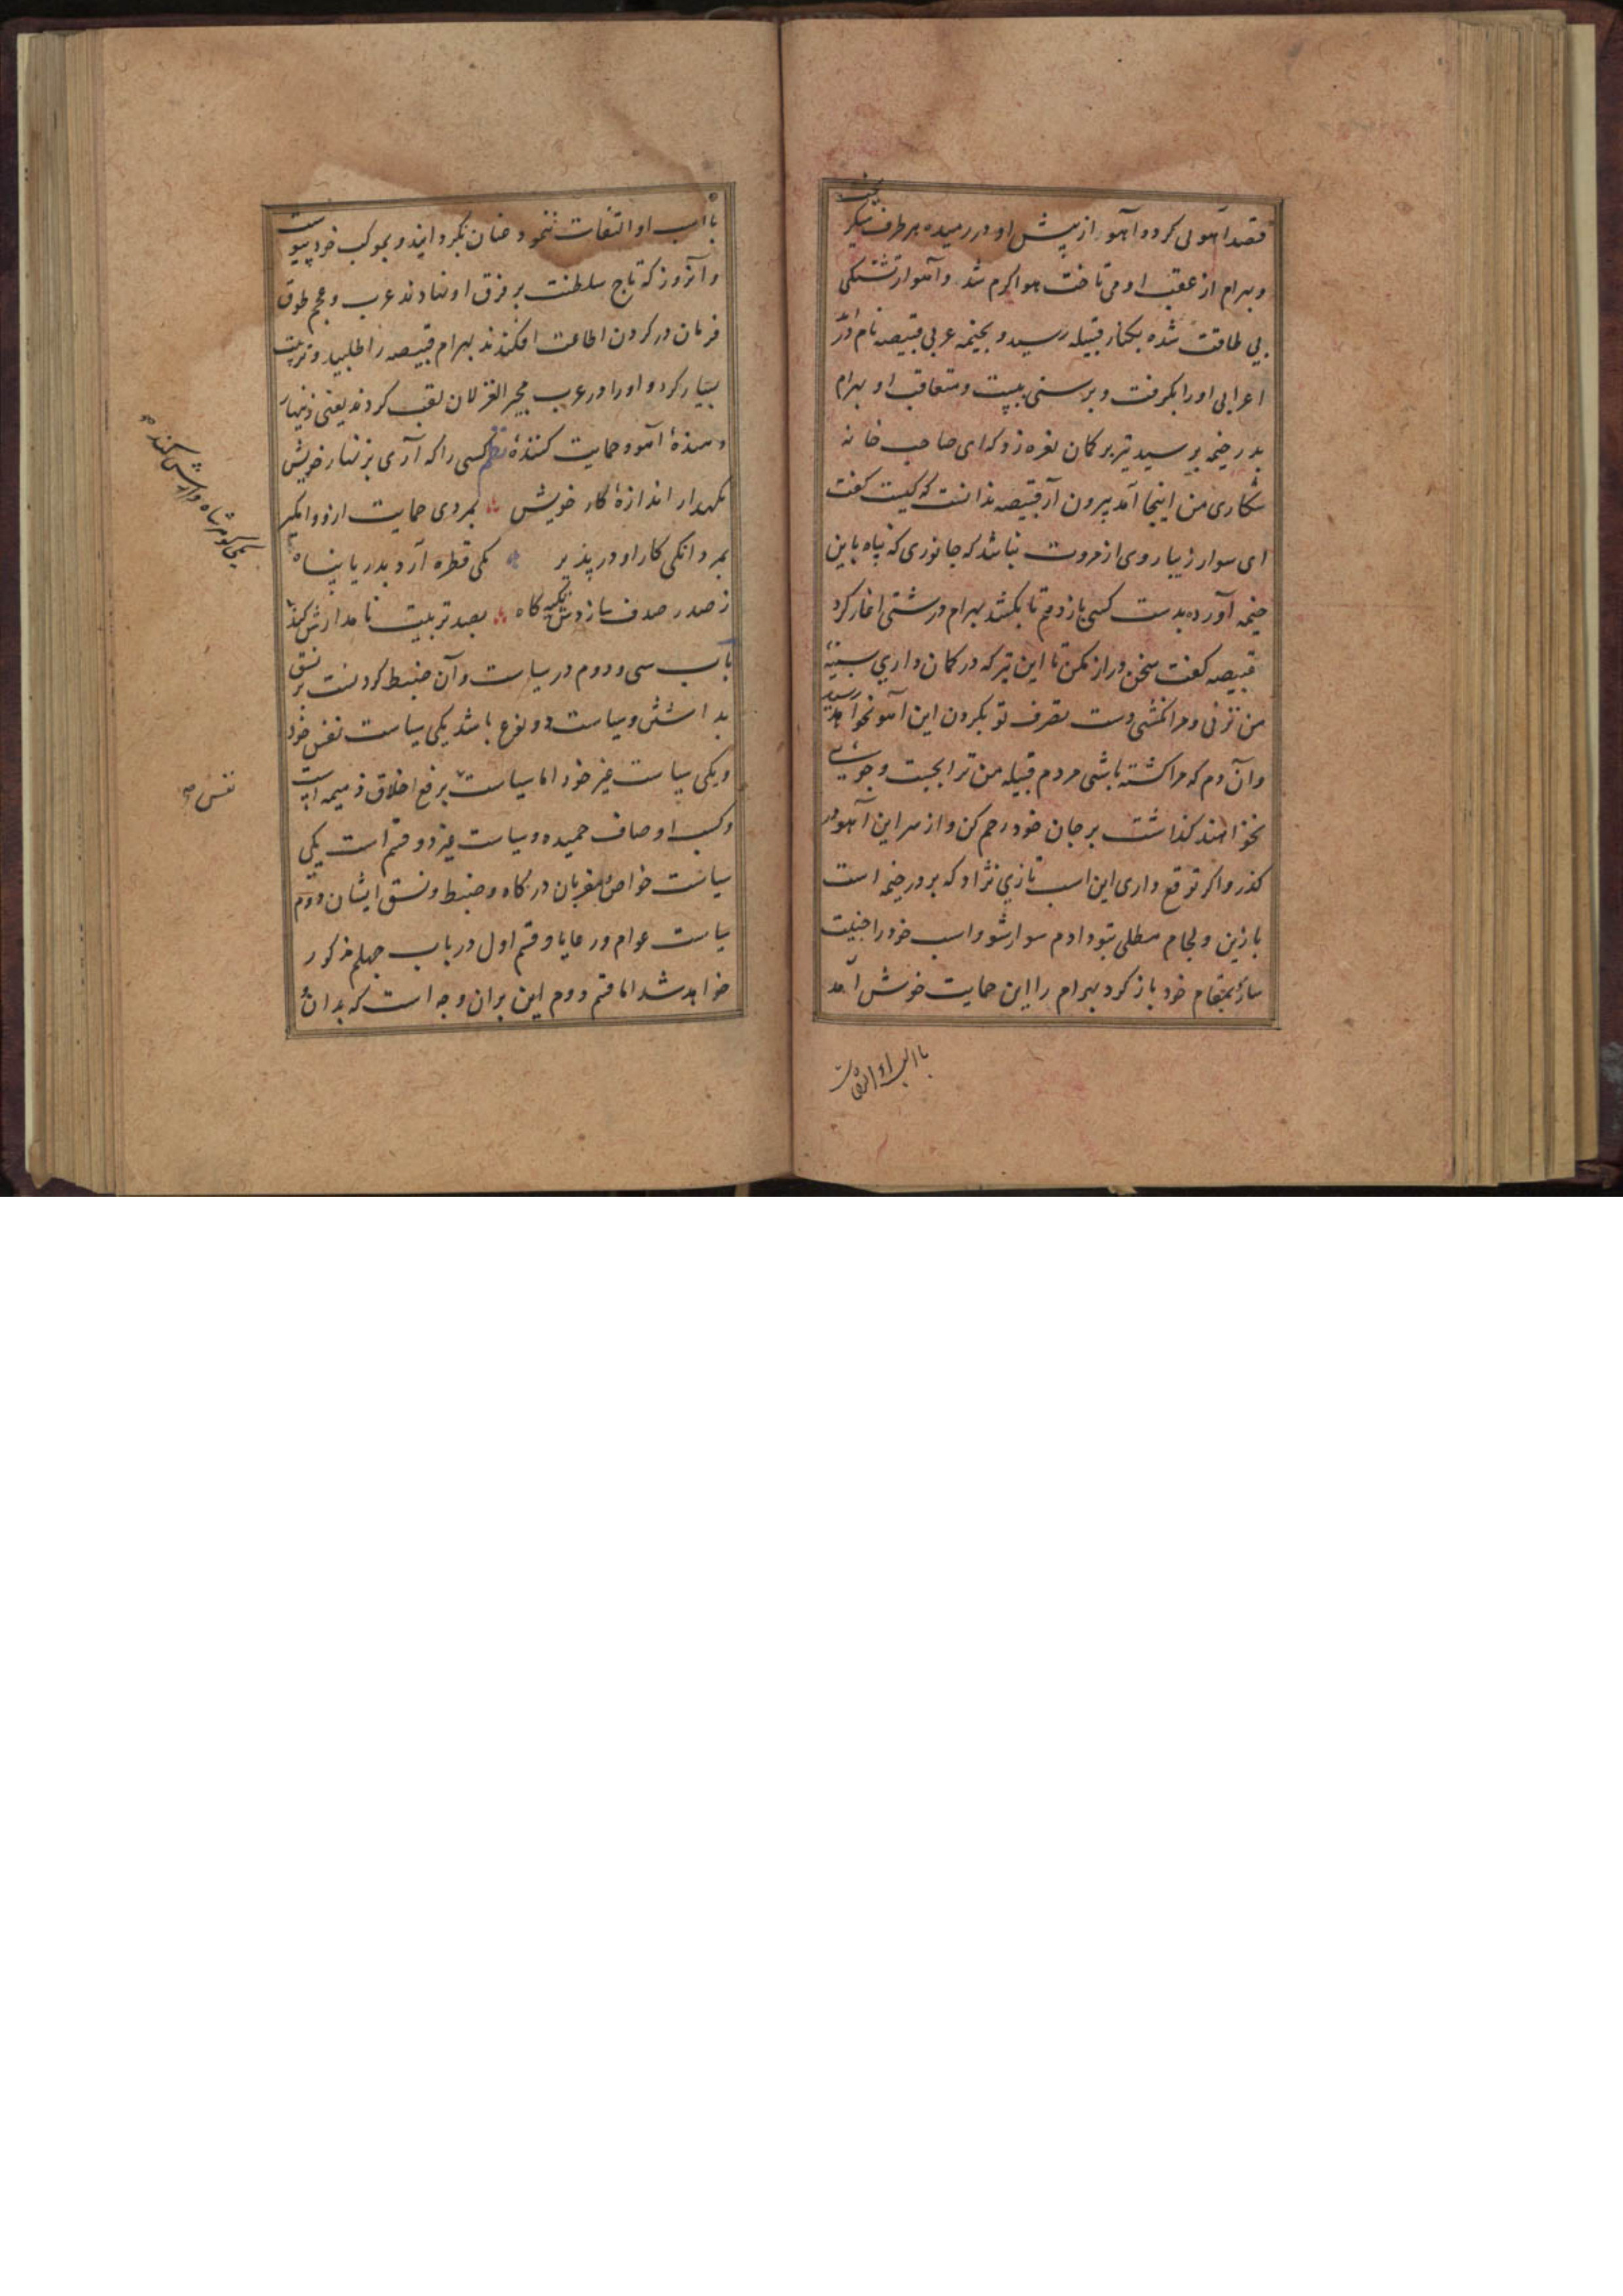 قصد آهوئی کرد و آهو از پیش او در رمیده هر طرف میگریخت
و بهرام از عقب او می تاخت هوا گرم شد و آهو از تشنگی
بی طاقت شده بکنار قبیله رسید و بخیمه عربی قبیصه نام در آمد
اعرابی او را بگرفت و برسنی ببست و متعاقب او بهرام
بدر خیمه برسید تیر بر کمان نعره زد که ای صاحب خانه
شکاری من اینجا آمد بیرون آر قبیصه ندانست که کیست گفت
ای سوار زیبا روی از مروت نباشد که جانوری که پناه باین
خیمه آورده بدست کسی باز دهم تا بکشد بهرام درشتی آغاز کرد
قبیصه گفت سخن دراز مکن تا این تیر که در کمان داری بسینهٔ
من نزنی و مرا نکشی دست تصرف تو بگردن این آهو نخواهد رسید
و آن دم که مرا کشته باشی مردم قبیله من ترا بجست و جوی
نخواهند گذاشت بر جان خود رحم کن و از سر این آهو در
گذر و اگر توقع داری این اسب تازی نژاد که بر در خیمه است
با زین و لجام مطلی بتو دادم سوار شو و اسب خود را جنیبت
ساز بمقام خود باز گرد بهرام را این حمایت خوش آمد
با اسب او التفات
با اسب او التفات ننمود عنان بگردانید و بموکب خود پیوست
و آنروز که تاج سلطنت بر فرق او نهادند عرب و عجم طوق
فرمان در گردن اطاعت افکندند بهرام قبیصه را طلبید و تربیت
بسیار کرد و او را در عرب مجیر الغزلان لقب کردند یعنی زنهار
دهندهٔ آهو و حمایت کنندهٔ نظم کسی را که آری بزنهار خویش
نگهدار اندازهٔ کار خویش بمردی حمایت ازو وامگیر
بمردانگی کار او در پذیر یکی قطره آرد بدریا پناه
ز صدر صدف سازدش تکیه گاه بصد تربیت نامدارش کند
باب سی و دوم در سیاست و آن ضبط کردنست بر نسق
بداشتن و سیاست دو نوع باشد یکی سیاست نفس خود
و یکی سیاست غیر خود اما سیاست برفع اخلاق ذمیمه است
و کسب اوصاف حمیده و سیاست غیر دو قسم است یکی
سیاست خواص و مقربان درگاه و ضبط و نسق ایشان دوم
سیاست عوام و رعایا و قسم اول در باب چهلم مذکور
خواهد شد اما قسم دوم این بران وجه است که بدان
نفس صح